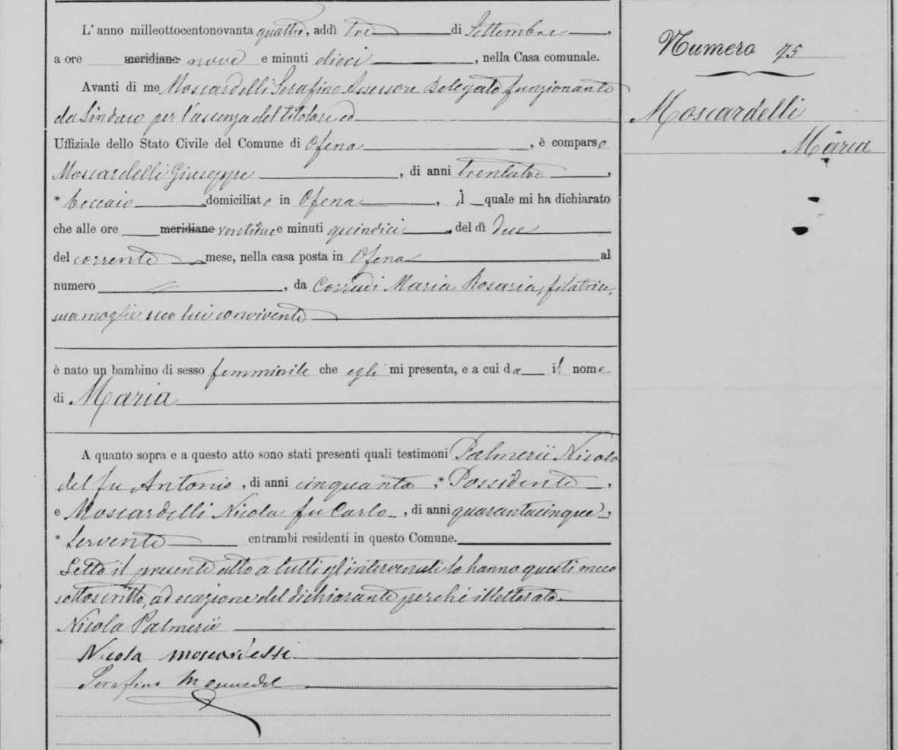 L'anno milleottocentonovanta quattro, addì tre di Settembre,
a ore meridiane nove e minuti dieci, nella Casa comunale.
Avanti di me Moscardelli Serafino Assessore Delegato funzionante
da Sindaco per l'assenza del titolare ed
Uffiziale dello Stato Civile del Comune di Ofena, è comparso
Moscardelli Giuseppe, di anni trentatre,
* beccaio domiciliato in Ofena, il quale mi ha dichiarato
che alle ore meridiane ventidue e minuti quindici del dì due
del corrente mese, nella casa posta in Ofena al
numero =, da Corradi Maria Rosaria, filatrice,
sua moglie seco lui convivente
è nato un bambino di sesso femminile che egli mi presenta, e a cui da il nome
di Maria
A quanto sopra e a questo atto sono stati presenti quali testimoni Palmerii Nicola
del fu Antonio, di anni cinquanta, * Possidente,
e Moscardelli Nicola fu Carlo, di anni quarantacinque,
* Servente entrambi residenti in questo Comune.
Letto il presente atto a tutti gl'intervenuti lo hanno questi meco
sottoscritto, ad eccezione del dichiarante perché illetterato.
Nicola Palmerii
Nicola Moscardelli
Serafino Moscardel
Numero 75
Moscardelli
Maria